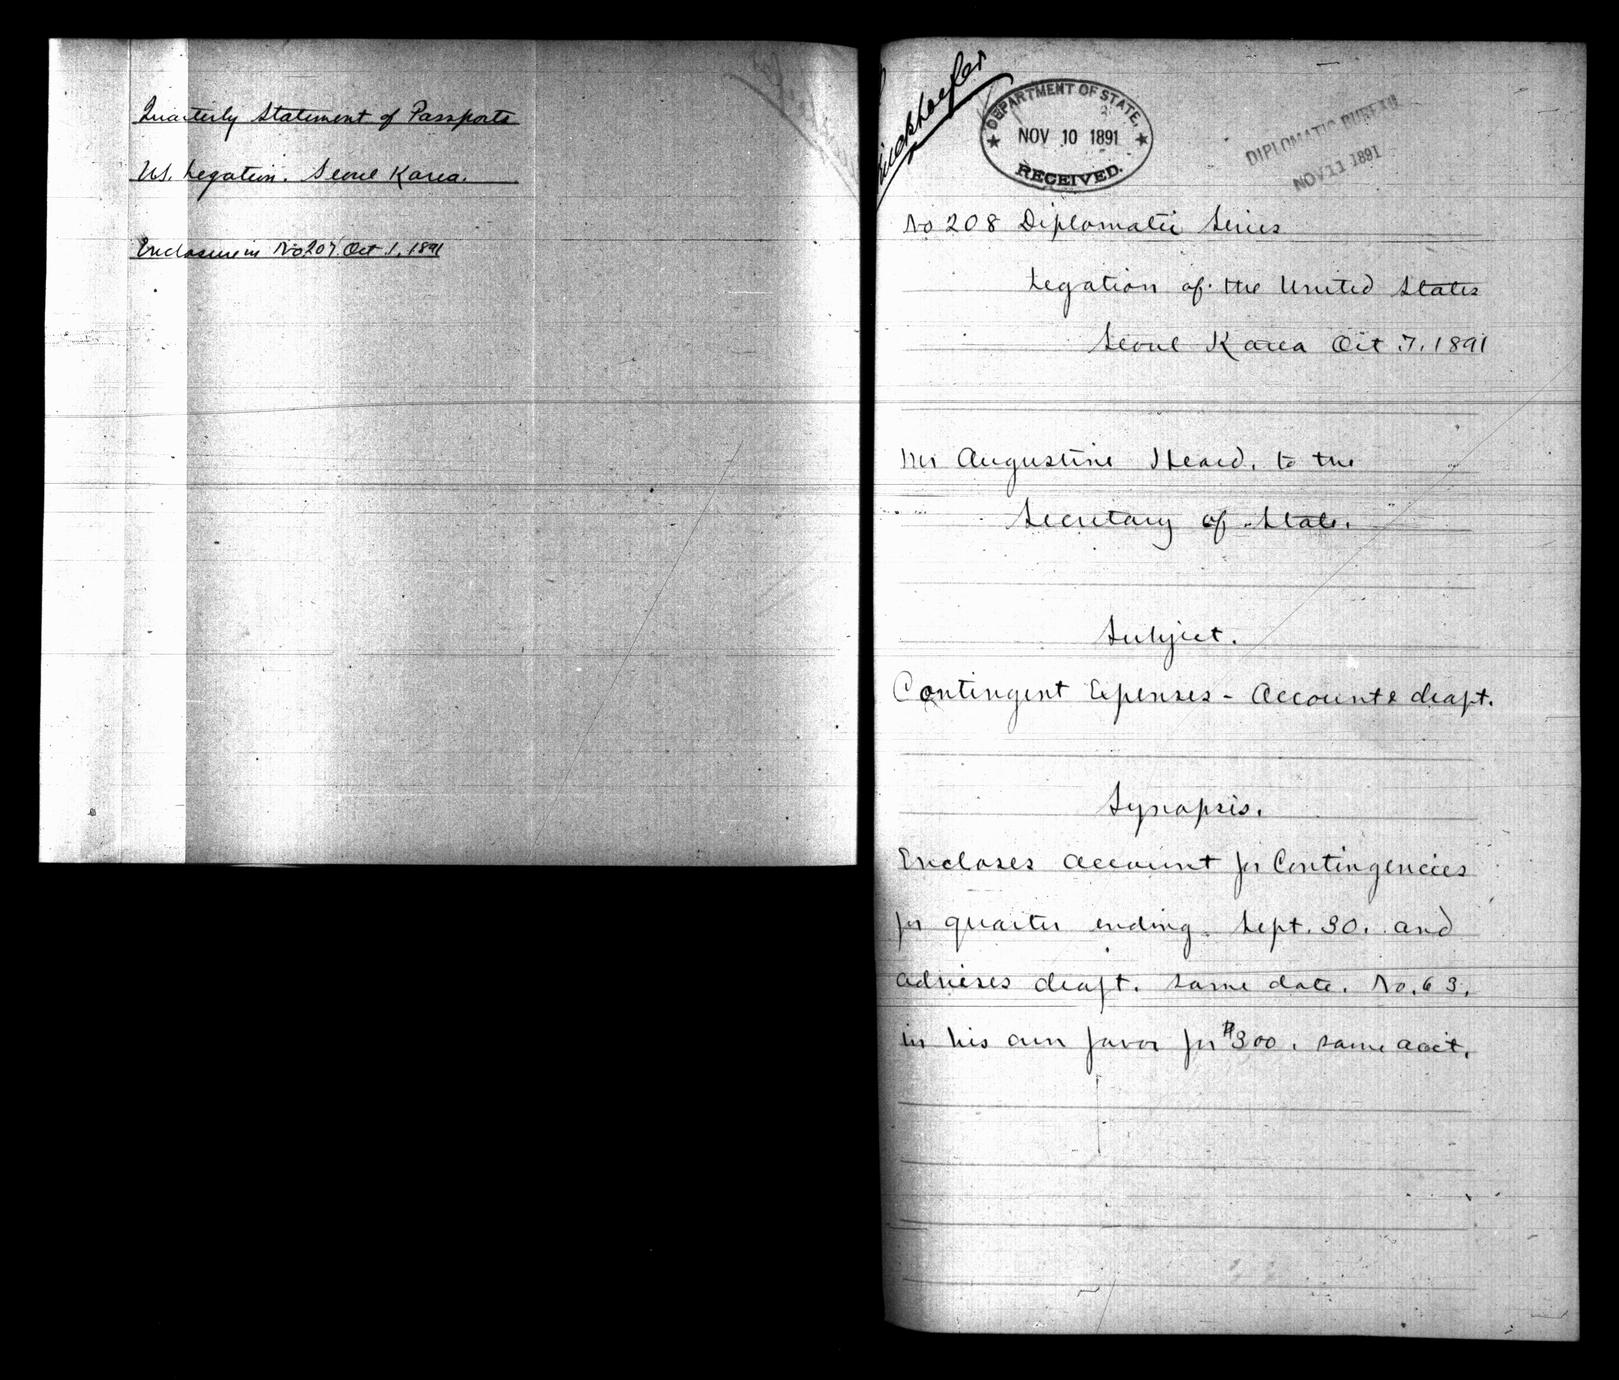 Quarterly Statement of Passports
U.S. Legation. Seoul Korea.
Enclosure in No 207. Oct. 1. 1891
DEPARTMENT OF STATE.
NOV 10 1891
RECEIVED.
DIPLOMATIC BUREAU
NOV 11 1891
No 208 Diplomatic Series
Legation of the United States
Seoul Korea Oct 7. 1891
Mr Augustine Heard. to the
Secretary of State.
Subject.
Contingent Expenses - Account & draft.
Synopsis.
Encloses account for Contingencies
for quarter ending Sept. 30. and
advises draft. same date. No. 63.
in his own favor for $300. same acct.